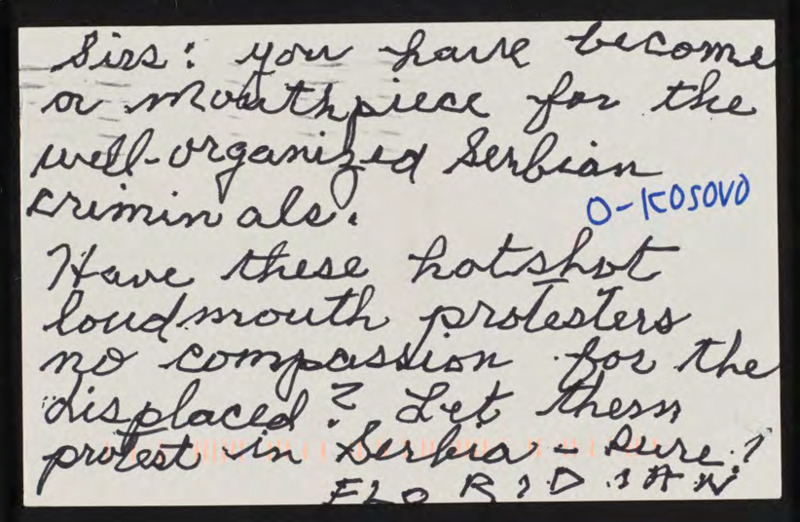 Sirs: you have become
a mouthpiece for the
well-organized Serbian
criminals.
O-KOSOVO
Have these hotshot
loudmouth protesters
no compassion for the
displaced? Let them
protest in Serbia - Sure!
FLORIDIAN